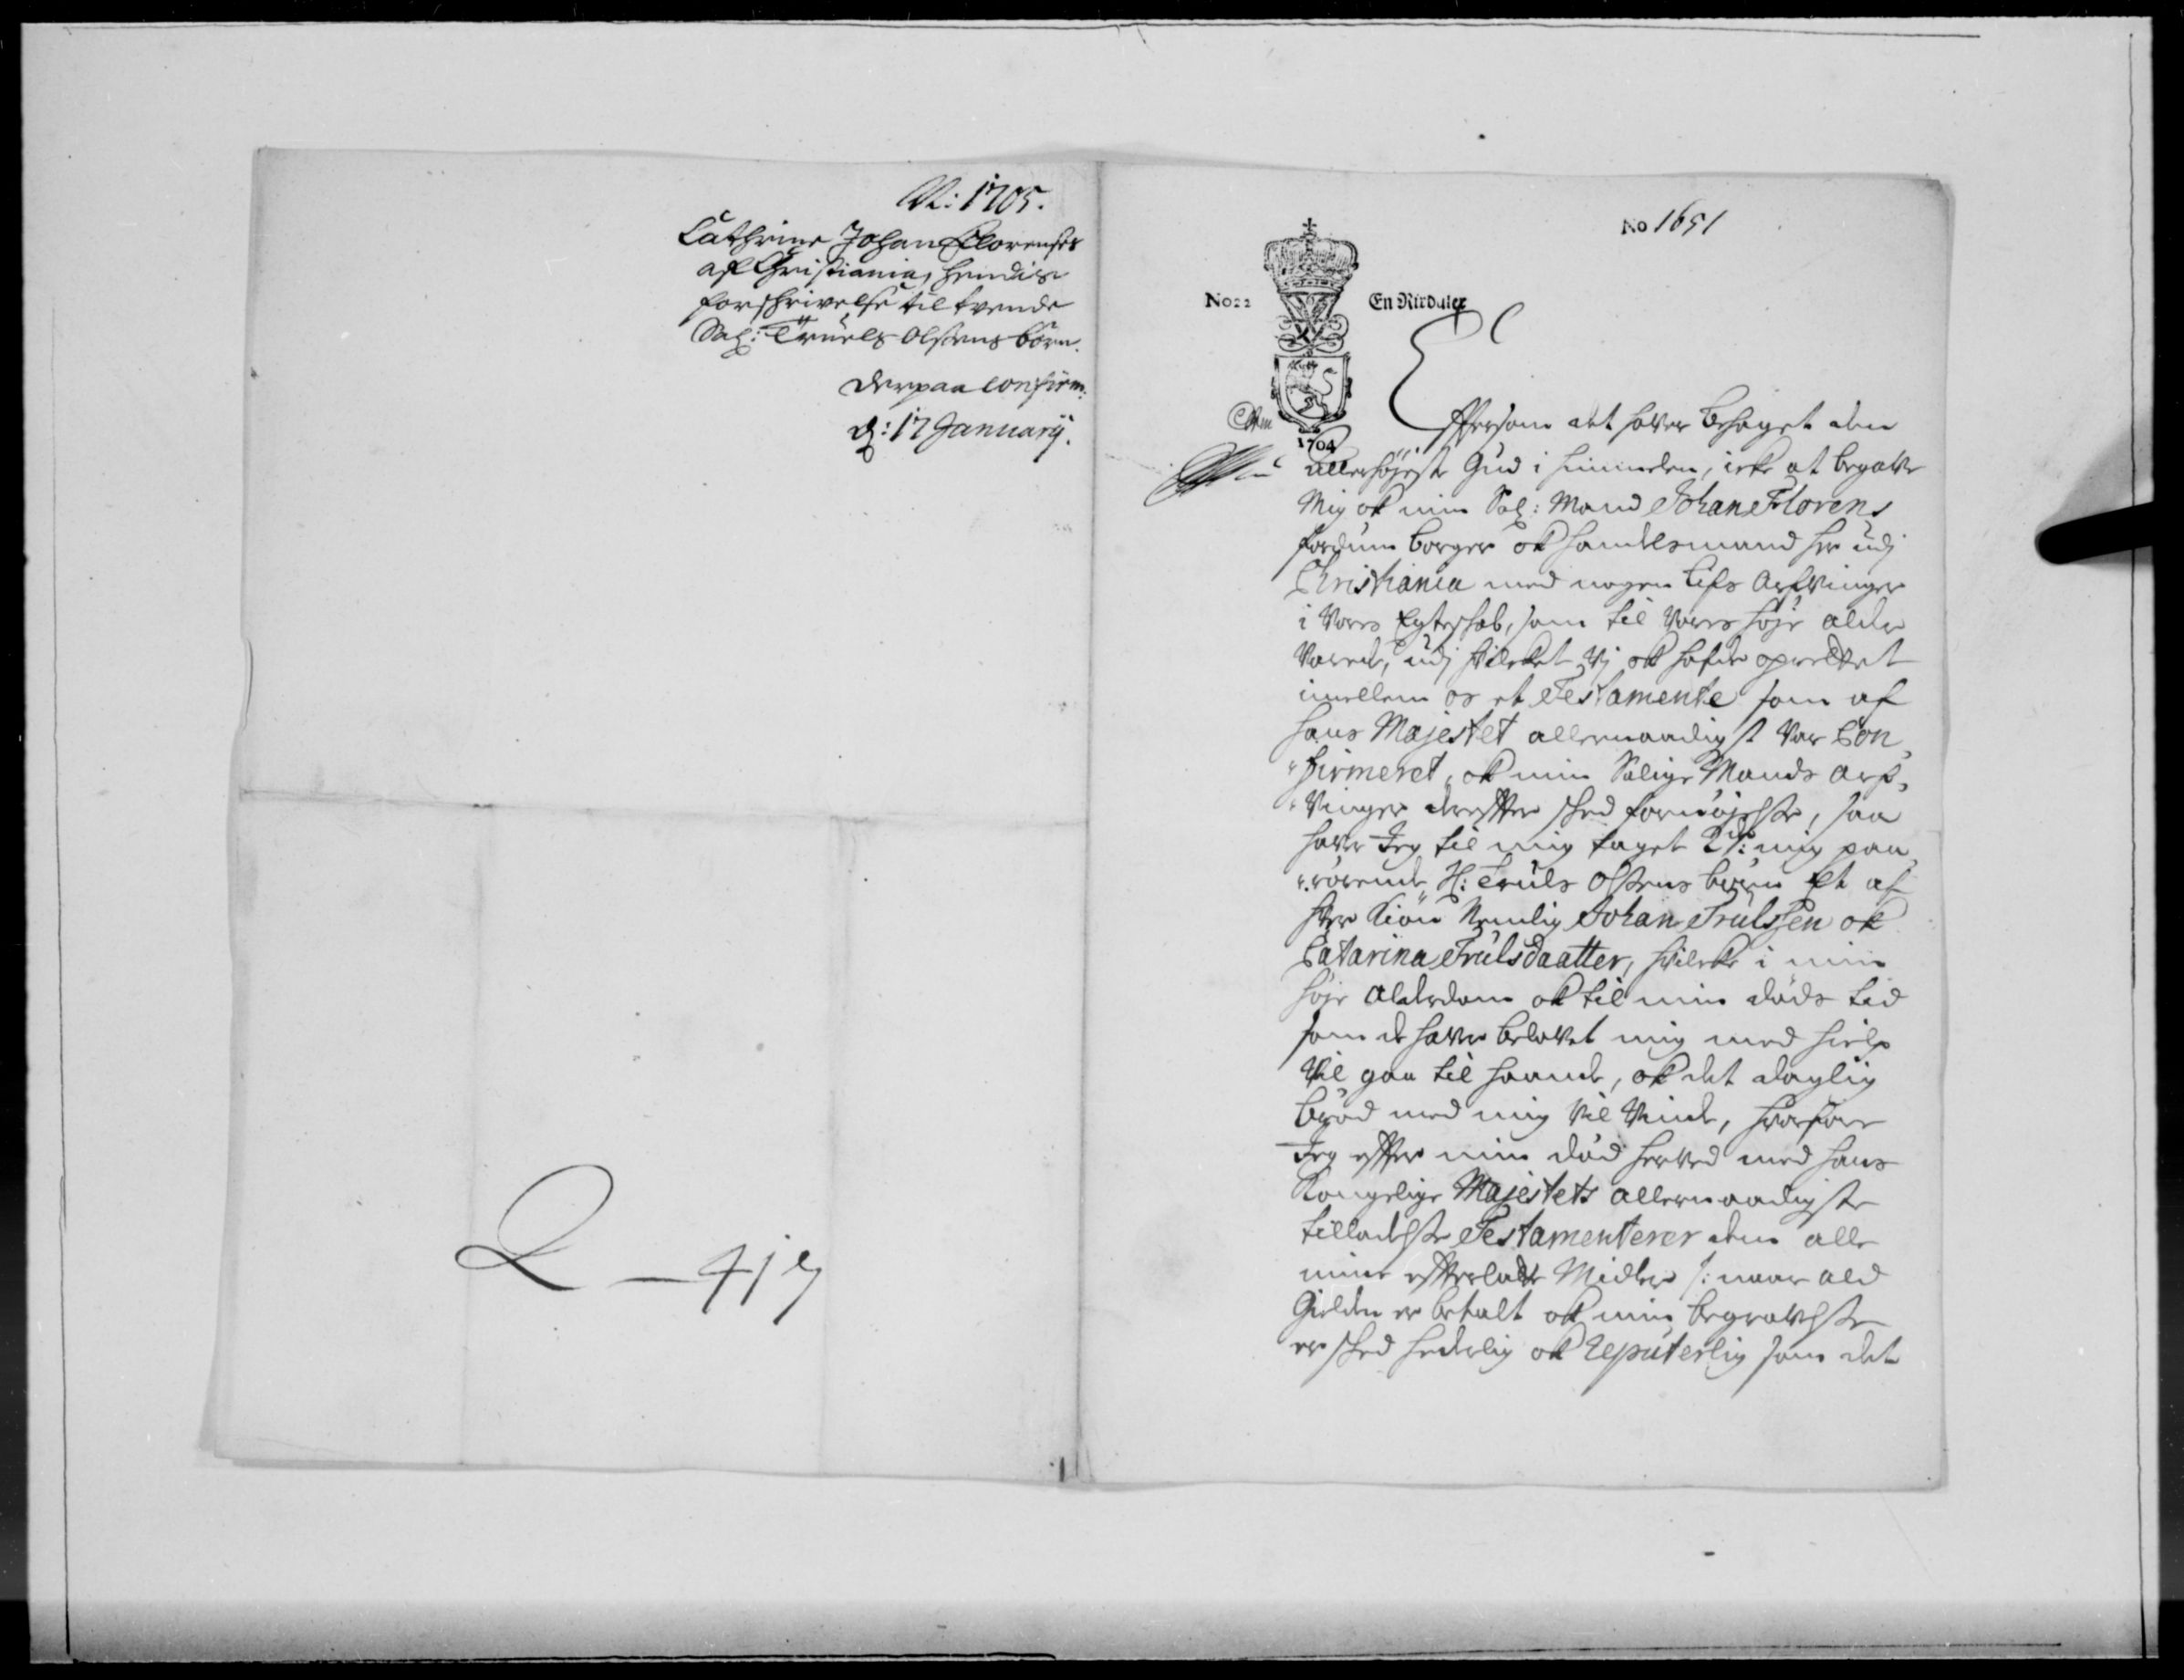 A: 1705.
Cathrine Johan Florenses
af Christiania, hendis
forschrivelse til tvende
Sal: Truels Olsens börn.
derpaa confirm:
d: 17 January.
L - 417
No 1651
No 22
En Rixdaler
1704
Effersom det haver behaget den
allerhöjeste Gud i himmelen, icke at begave
Mig ok min Sal: Mand Johan Florens
fordum borger ok handelsmand her udj
Christiania med nogen Lifs Arfvinger
i vores Egteschab, som til vores höje alder
varede, udj hvilcket vj ok hafde oprettet
imellem os et Testamente som af
hans Majestet allernaadigst var Con,
firmeret, ok min Salige Mands arf,
vinger dereffter sked fornöjelse, saa
haver Jeg til mig taget 2de: mig paa,
rörende H: Truls Olsens börn Et af
hver Kiön Nemlig Johan Trulssen ok
Catarina Trulsdaatter, hvilcke i min
höje Alderdom ok til min döds tid
som de haver belovet mig med hielp
vil gaa til haande, ok det daglig
bröd med mig vil vinde, hvorfore
Jeg effter min död herved med hans
Kongelige Majestets allernaadigste
tilladelse Testamenterer dem alle
mine effterladte Midler /: naar ald
Gielden er betalt ok min begravelse
er sked hederlig ok reputerlig som det